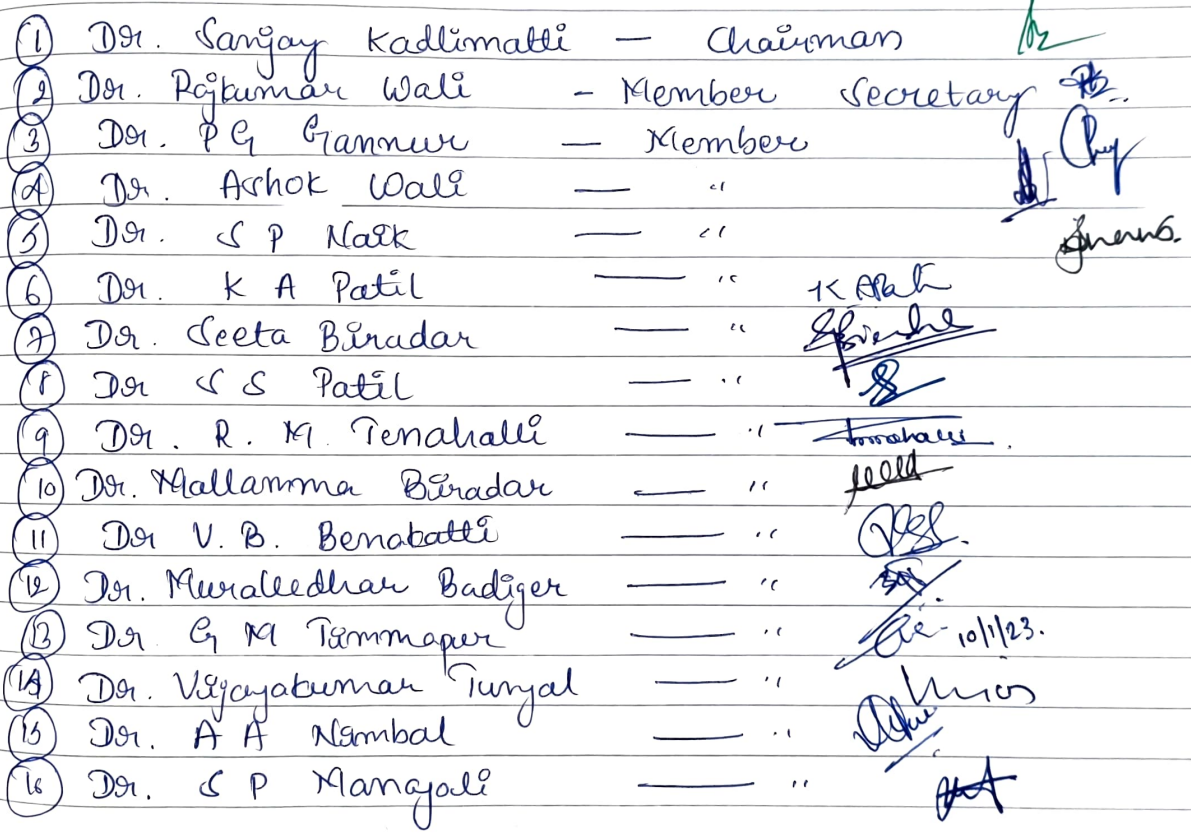 1 Dr. Sanjay Kadlimatti — Chairman
2 Dr. Rajkumar Wali - Member Secretary
3 Dr. P G Gannur — Member
4 Dr. Ashok Wali — "
5 Dr. S P Naik — "
6 Dr. K A Patil — " K A Patil
7 Dr. Seeta Biradar — "
8 Dr S S Patil — "
9 Dr. R. M. Tenahalli — "
10 Dr. Mallamma Biradar — "
11 Dr V. B. Benakatti — "
12 Dr. Muraleedhar Badiger — "
13 Dr G M Timmapur — " 10/1/23.
14 Dr. Vijayakumar Tunjal — "
15 Dr. A A Nimbal — "
16 Dr. S P Managoli — "